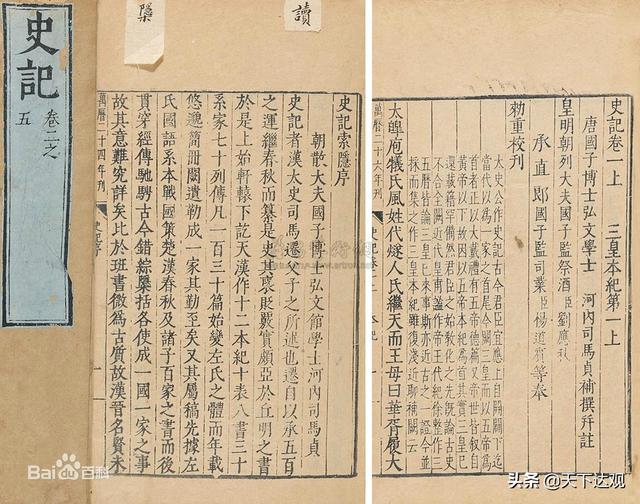 史記
卷二之
五
隱
讀
史記索隱序
朝散大夫國子博士弘文館學士河內司馬貞
史記者漢太史司馬遷父子之所述也遷自以承五百
之運繼春秋而纂是史其褒貶覈實頗亞於丘明之書
於是上始軒轅下訖天漢作十二本紀十表八書三十
系家七十列傳凡一百三十篇始變左氏之體而年載
悠邈簡冊闕遺勒成一家其勤至矣又其屬稿先據左
氏國語系本戰國策楚漢春秋及諸子百家之書而後
貫穿經傳馳騁古今錯綜櫽括各使成一國一家之事
故其意難究詳矣比於班書微為古質故漢晉名賢未
萬曆二十四年刊
史記序
史記卷一上 三皇本紀第一上
唐國子博士弘文學士 河內司馬貞補撰并註
皇明朝列大夫國子監祭酒臣劉應秋
承直郎國子監司業臣楊道賓等奉
勅重校刊
太史公作史記古今君臣宜應上自開闢下迄
當代以為一家之首尾今闕三皇而以五帝為
首者正以大戴禮有五帝德篇又帝世皆叙自
黃帝以下故因以五帝本紀為首其實三皇已
還載籍罕備然君臣之始教化之先既論古史
不合全闕近代皇甫謐作帝王代紀徐整作三
五曆皆論三皇已來事斯亦近古之一證今並
採而集之作三皇本紀雖復淺近聊補闕云
太皞庖犧氏風姓代燧人氏繼天而王母曰華胥履大
萬曆二十六年刊
Bai百科
头条 @天下达观